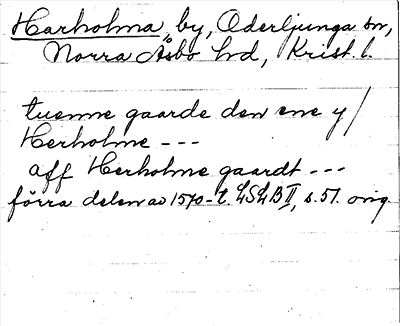 Harholma, by, Oderljunga sn,
Norra Åsbo hd, Krist. l.
tuenne gaarde den ene y/
Herholme ---
aff Herholme gaardt ---
förra delen av 1570-t. LSLB II, s. 51. orig.